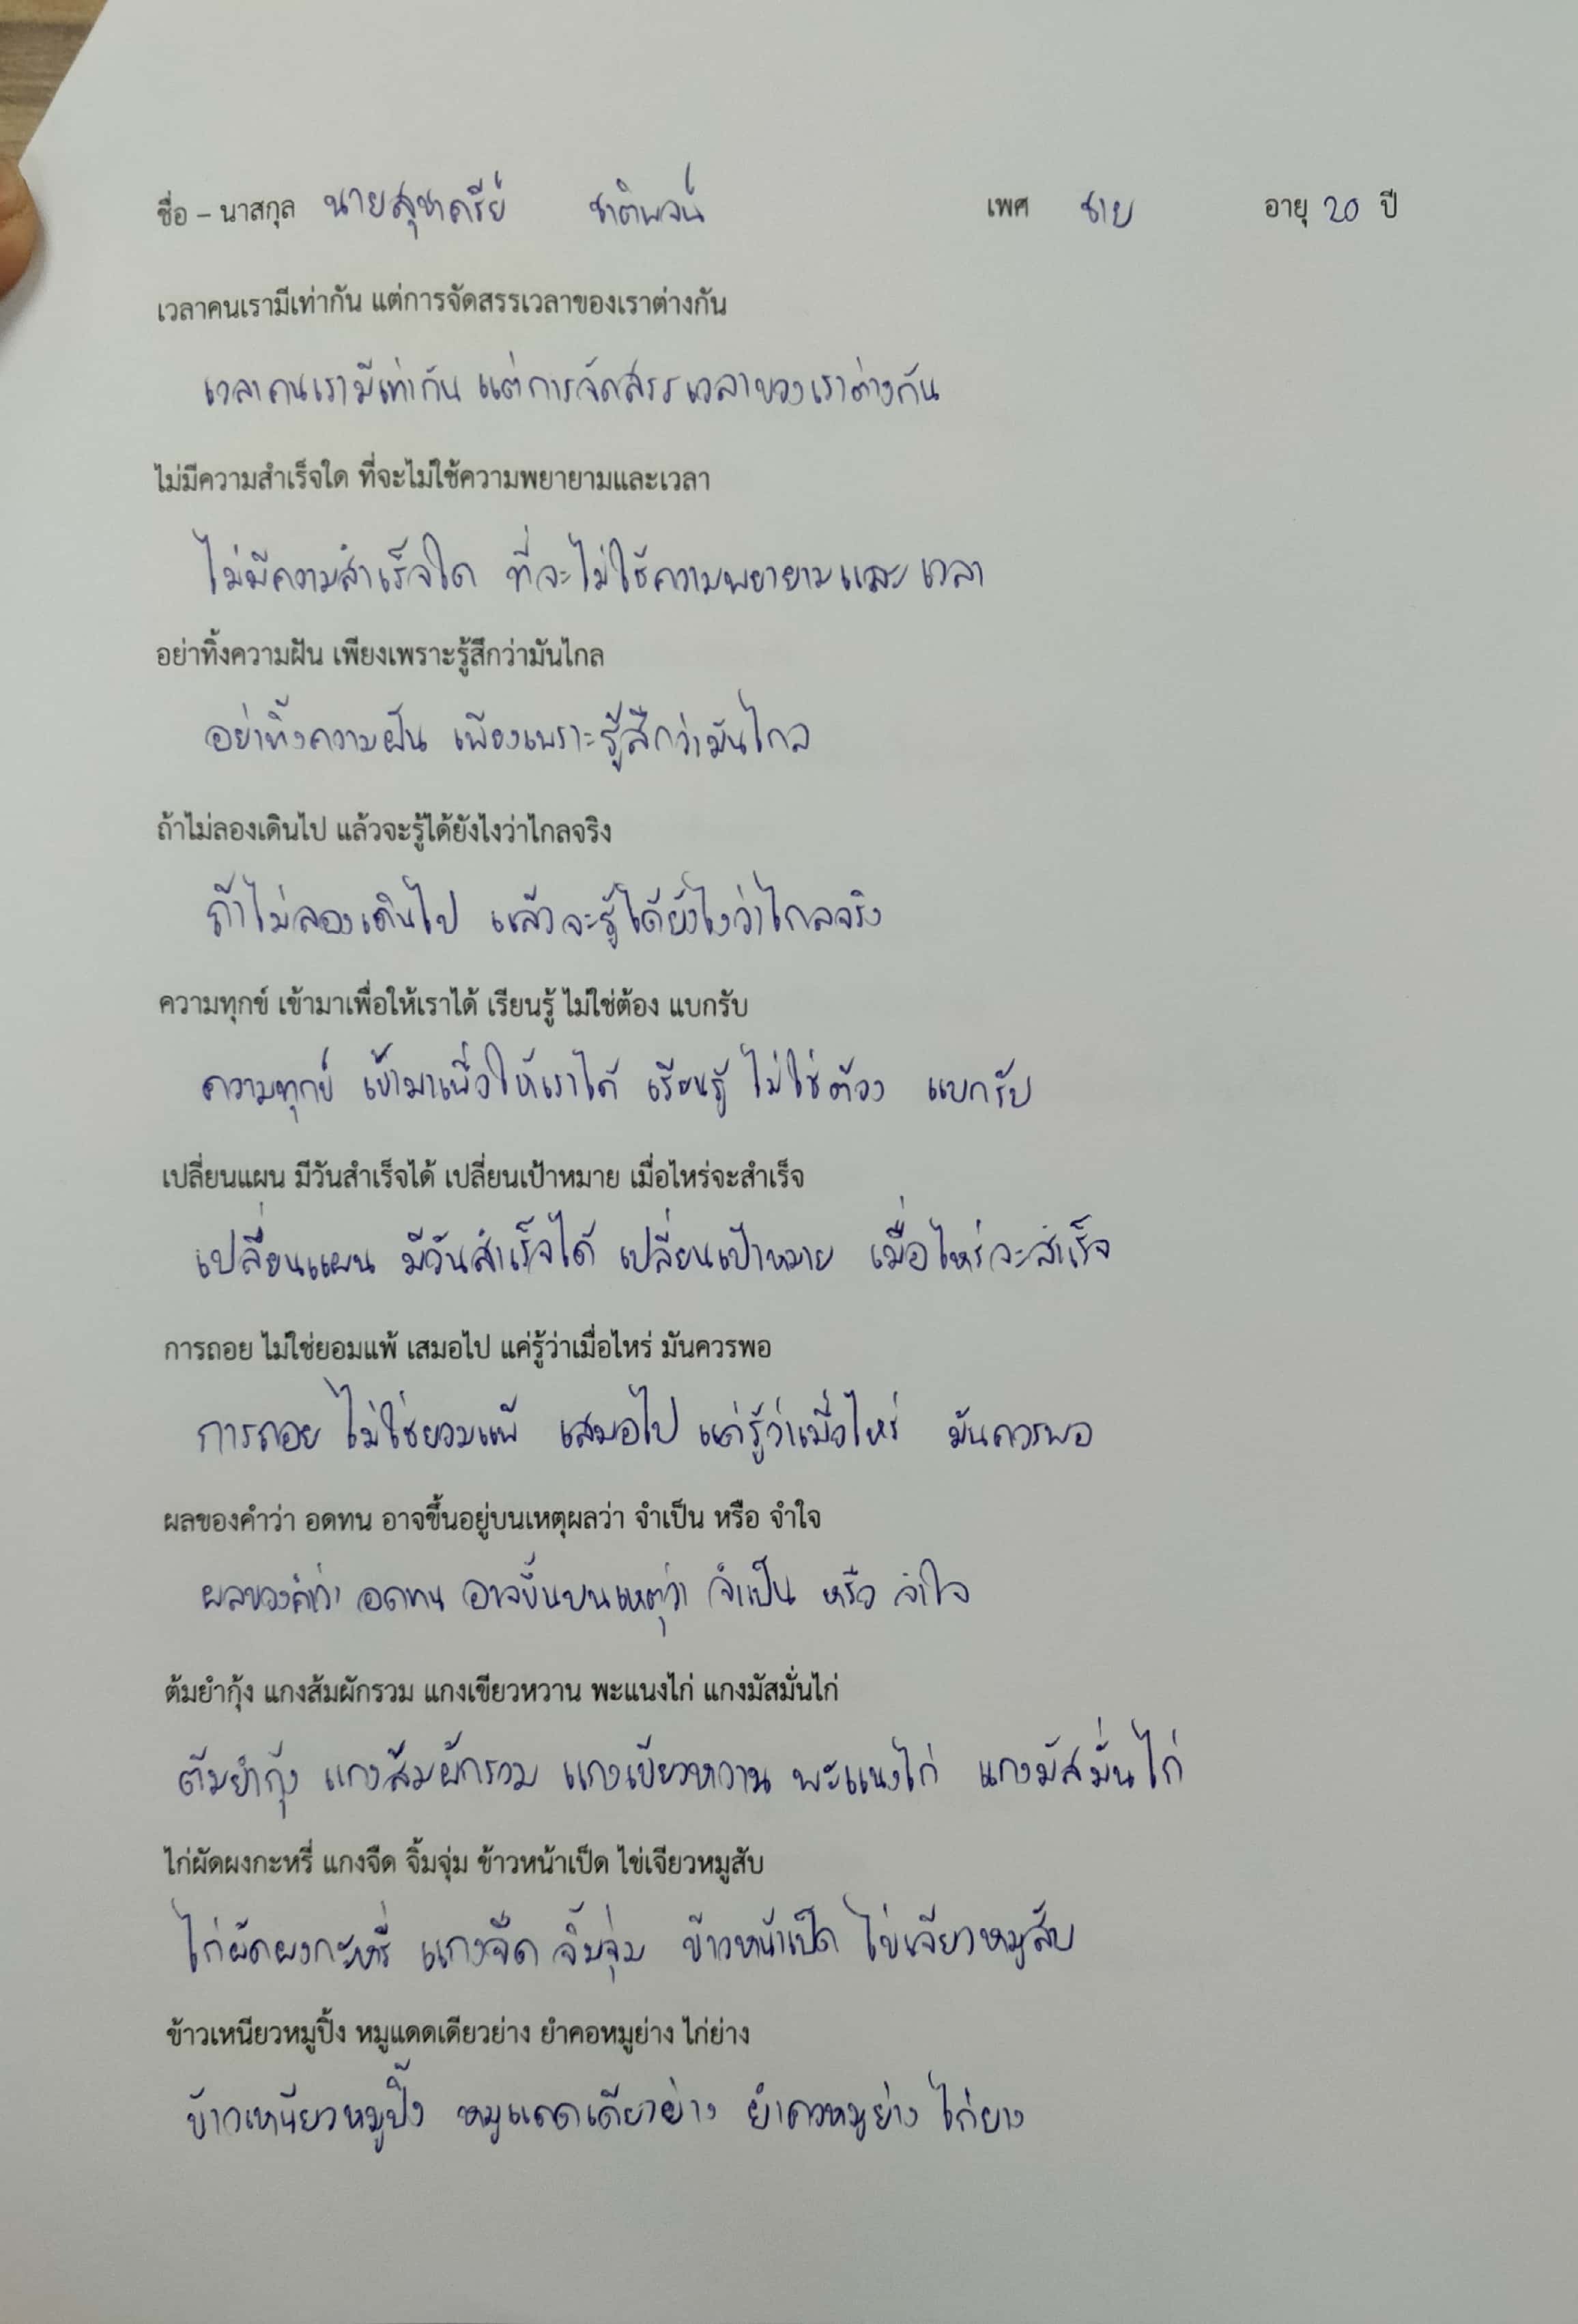 ชื่อ – นาสกุล นายสุชาครีย์ ชาติพจน์ เพศ ชาย อายุ 20 ปี
เวลาคนเรามีเท่ากัน แต่การจัดสรรเวลาของเราต่างกัน
เวลาคนเรามีเท่ากัน แต่การจัดสรรเวลาของเราต่างกัน
ไม่มีความสำเร็จใด ที่จะไม่ใช้ความพยายามและเวลา
ไม่มีความสำเร็จใด ที่จะไม่ใช้ความพยายามและเวลา
อย่าทิ้งความฝัน เพียงเพราะรู้สึกว่ามันไกล
อย่าทิ้งความฝัน เพียงเพราะรู้สึกว่ามันไกล
ถ้าไม่ลองเดินไป แล้วจะรู้ได้ยังไงว่าไกลจริง
ถ้าไม่ลองเดินไป แล้วจะรู้ได้ยังไงว่าไกลจริง
ความทุกข์ เข้ามาเพื่อให้เราได้ เรียนรู้ ไม่ใช่ต้อง แบกรับ
ความทุกข์ เข้ามาเพื่อให้เราได้ เรียนรู้ ไม่ใช่ต้อง แบกรับ
เปลี่ยนแผน มีวันสำเร็จได้ เปลี่ยนเป้าหมาย เมื่อไหร่จะสำเร็จ
เปลี่ยนแผน มีวันสำเร็จได้ เปลี่ยนเป้าหมาย เมื่อไหร่จะสำเร็จ
การถอย ไม่ใช่ยอมแพ้ เสมอไป แค่รู้ว่าเมื่อไหร่ มันควรพอ
การถอย ไม่ใช่ยอมแพ้ เสมอไป แค่รู้ว่าเมื่อไหร่ มันควรพอ
ผลของคำว่า อดทน อาจขึ้นอยู่บนเหตุผลว่า จำเป็น หรือ จำใจ
ผลของคำว่า อดทน อาจขึ้นบนเหตุว่า จำเป็น หรือ จำใจ
ต้มยำกุ้ง แกงส้มผักรวม แกงเขียวหวาน พะแนงไก่ แกงมัสมั่นไก่
ต้มยำกุ้ง แกงส้มผักรวม แกงเขียวหวาน พะแนงไก่ แกงมัสมั่นไก่
ไก่ผัดผงกะหรี่ แกงจืด จิ้มจุ่ม ข้าวหน้าเป็ด ไข่เจียวหมูสับ
ไก่ผัดผงกะหรี่ แกงจืด จิ้มจุ่ม ข้าวหน้าเป็ด ไข่เจียวหมูสับ
ข้าวเหนียวหมูปิ้ง หมูแดดเดียวย่าง ยำคอหมูย่าง ไก่ย่าง
ข้าวเหนียวหมูปิ้ง หมูแดดเดียวย่าง ยำคอหมูย่าง ไก่ยาง